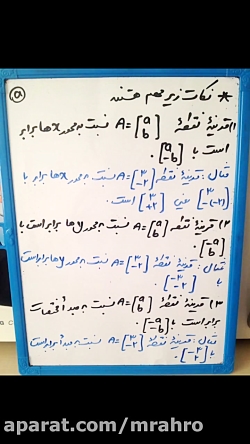 ۵
* نکات زیر مهم هستند
۱) قرینهٔ نقطهٔ A=[a b] نسبت به محور xها برابر
است با [a -b].
مثال: قرینهٔ نقطهٔ A=[3 -2] نسبت به محور xها برابر با
[3 -(-2)] یعنی [3 +2] است.
۲) قرینهٔ نقطهٔ A=[a b] نسبت به محور yها برابر است با
[-a b].
مثال: قرینهٔ نقطهٔ A=[3 -2] نسبت به محور yها برابر است
با [-3 -2].
۳) قرینهٔ نقطهٔ A=[a b] نسبت به مبدأ مختصات
برابر است با [-a -b].
مثال: قرینهٔ نقطهٔ A=[3 -2] نسبت به مبدأ برابر است
با [-3 2].
aparat.com/mrahro